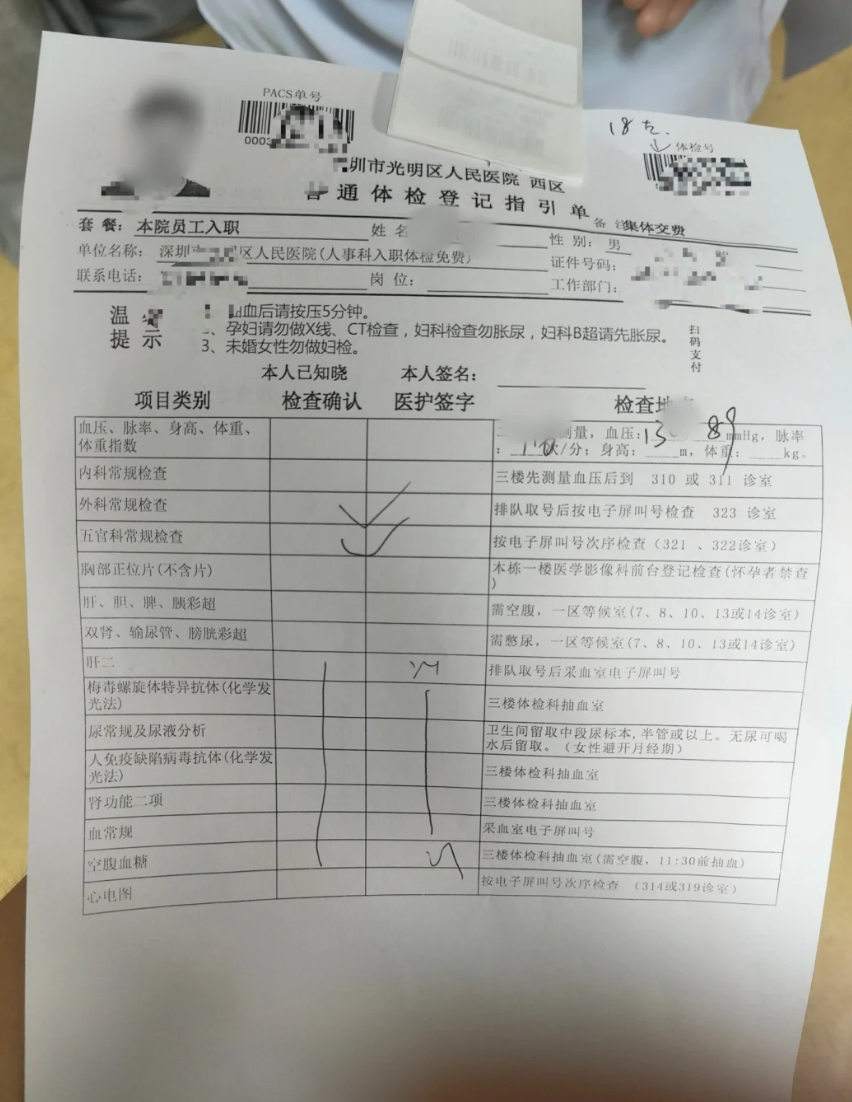 PACS单号
18左.
体检号
圳市光明区人民医院 西区
普通体检登记指引单
备注 集体交费
套餐: 本院员工入职 姓名 性别: 男
单位名称: 深圳 区人民医院(人事科入职体检免费) 证件号码:
联系电话: 岗位: 工作部门:
温
提示
血后请按压5分钟。
2、孕妇请勿做X线、CT检查,妇科检查勿胀尿,妇科B超请先胀尿。
3、未婚女性勿做妇检。
扫码支付
本人已知晓 本人签名:
项目类别 检查确认 医护签字 检查地
血压、脉率、身高、体重、体重指数
测量, 血压: 13 89 mmHg, 脉率: 次/分; 身高: m, 体重: kg。
内科常规检查 三楼先测量血压后到 310 或 311 诊室
外科常规检查 排队取号后按电子屏叫号检查 323 诊室
五官科常规检查 按电子屏叫号次序检查(321 、322诊室)
胸部正位片(不含片) 本栋一楼医学影像科前台登记检查(怀孕者禁查)
肝、胆、脾、胰彩超 需空腹,一区等候室(7、8、10、13或14诊室)
双肾、输尿管、膀胱彩超 需憋尿,一区等候室(7、8、10、13或14诊室)
肝二 排队取号后采血室电子屏叫号
梅毒螺旋体特异抗体(化学发光法) 三楼体检科抽血室
尿常规及尿液分析 卫生间留取中段尿标本,半管或以上。无尿可喝水后留取。(女性避开月经期)
人免疫缺陷病毒抗体(化学发光法) 三楼体检科抽血室
肾功能二项 三楼体检科抽血室
血常规 采血室电子屏叫号
空腹血糖 三楼体检科抽血室(需空腹,11:30前抽血)
心电图 按电子屏叫号次序检查 (314或319诊室)